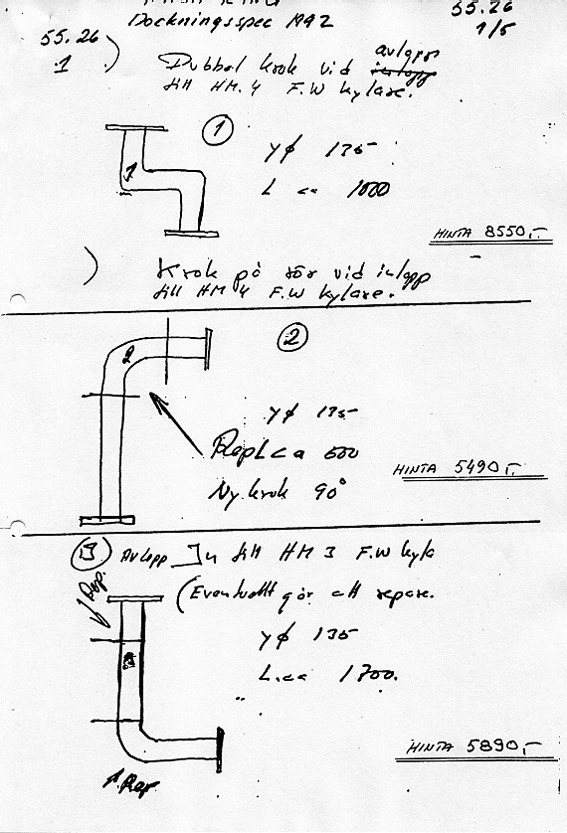 Dockningsspec 1992
55.26
1/5
55.26
.1 )
Dubbel krok vid avlopp
till HM. 4 F.W kylare.
1
1
Yø 135
L ca 1000
HINTA 8550,-
) Krok på rör vid inlopp
till HM 4 F.W kylare.
2
2
Yø 135
Rep L ca 600
Ny krok 90°
HINTA 5490,-
3 Avlopp till HM 3 F.W kyla
Rep.
(Eventuellt går att repare.
Yø 135
L. ca 1700.
HINTA 5890,-
Rep